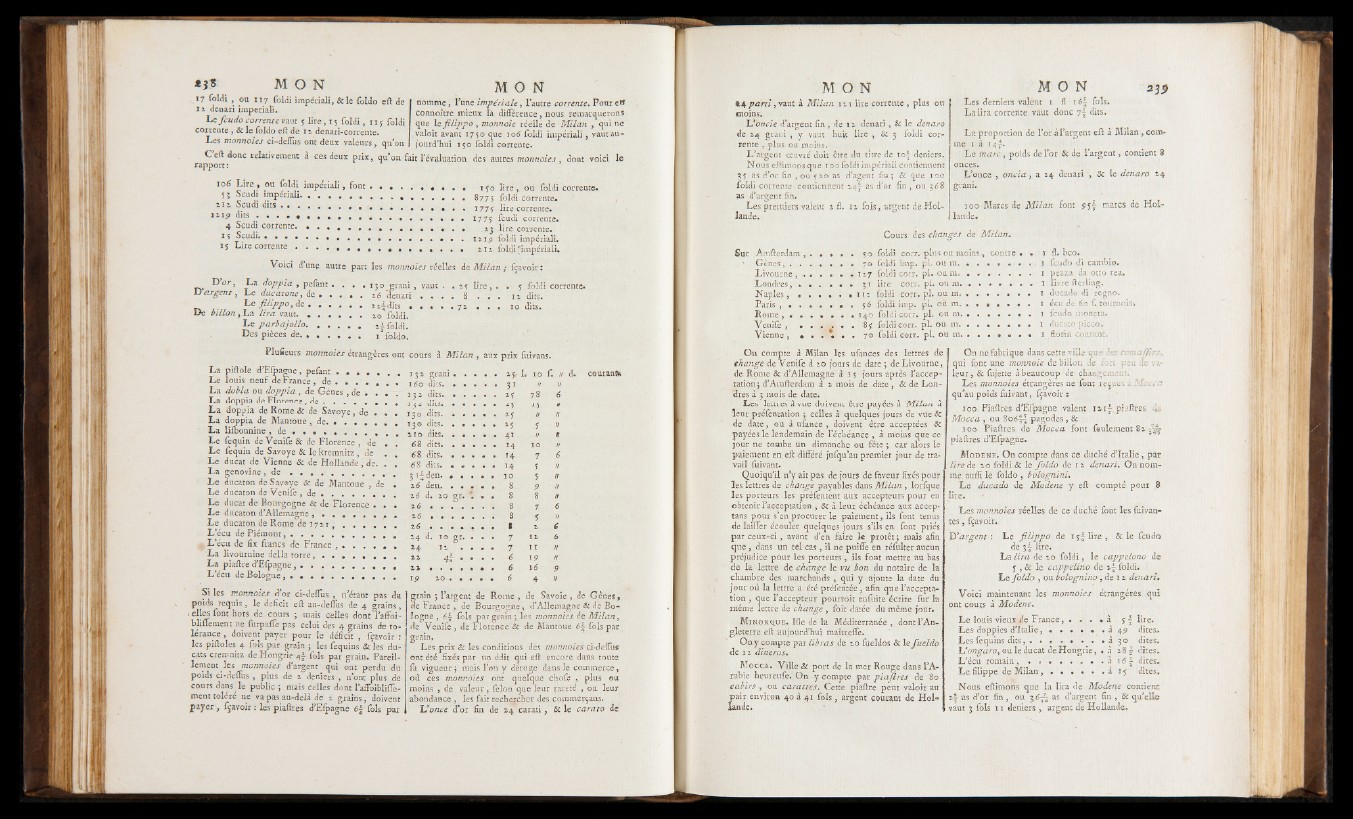 238 MON MON
17 foldi , ou 117 foldi impériali, & le foldo eft de
12 denari imperiali.
Le fcudo corrente vaut 5 lire, 15 foldi, 115 foldi
corrente, & le foldo eft de 12 denari-corrente.
Les monnoies ci-deffus ont deux valeurs, qu'on
nomme, l'une impériale, l'autre corrente. Pour en
connoître mieux la différence, nous remarquerons
que le filippo, monnoie réelle de Milan , qui ne
valoit avant 1750 que 106 foldi impériali, vaut au-
jourd'hui 150 foldi corrente.
C'eft donc relativement à ces deux prix, qu'on fait l'évaluation des autres monnoies, dont voici le
rapport:
106 Lire, ou foldi impériali, font . . . . . . . . . 150 lire, ou foldi corrente.
53 Scudi impériali. . . . . . . . . . 8775 foldi corrente.
212 Scudi dits . . . . . . . . . . 1775 lire corrente.
1219 dits . . . . . . . . . . 1775 fcudi corrente.
4 Scudi corrente. . . . . . . . . . 23 lire corrente.
15 Scudi. . . . . . . . . . 1219 foldi impériali.
15 Lire corrente . . . . . . . . . . 212 foldi impériali.
Voici d'une autre part les monnoies réelles de Milan ; fçavoir :
D'or, La doppia , pefant . . . 130 grani , vaut . . 25 lire, . . 5 foldi corrente.
D'argent, Le ducatone, de . . . . . 26 denari . . . . 8 . . . 12 dits.
Le filippo, de . . . . . . . 22½ dits . . . . . 72 . . . 10 dits.
De billon, La lira vaut. . . . . . . 20 foldi.
Le parbajollo. . . . . . 2½ foldi.
Des pièces de. . . . . . . 1 foldo.
Plufieurs monnoies étrangères ont cours à Milan , aux prix fuivans.
La piftole d'Efpagne, pefant . . . . . 132 grani . . . . . 25 l. 10 f. // d. courant.
Le louis neuf de France, de . . . . . . 160 dits. . . . . . 31 // //
La dobla ou doppia , de Gènes, de . . . . 132 dits. . . . . . 25 78 6
La doppia de Florence, de . . . . . . 132 dits. . . . . . 25 15 //
La doppia de Rome & de Savoye, de . . . 130 dits. . . . . . 25 // //
La doppia de Mantoue , de. . . . . . . 130 dits. . . . . . 25 5 //
La lifbonnine , de . . . . . . . . . 210 dits. . . . . . 41 // 8
Le fequin de Venife & de Florence , de . . 68 dits. . . . . . 14 10 //
Le fequin de Savoye & le kremnitz , de . . 68 dits. . . . . . 14 7 6
Le ducat de Vienne & de Hollande, de . . . 68 dits. . . . . . 14 5 //
La genovine, de . . . . . . . . . . 31½ den. . . . . . 10 5 //
Le ducaton de Savoye & de Mantoue , de . 26 den. . . . . . 8 9 //
Le ducaton de Venife , de . . . . . . . 26 d. 20 gr. . . . 8 8 //
Le ducat de Bourgogne & de Florence . . . 26 . . . . . . . 8 7 6
Le ducaton d'Allemagne , . . . . . . . 26 . . . . . . . 8 5 //
Le ducaton de Rome de 1721, . . . . . . 26 . . . . . . . 8 2 6
L'écu de Piémont, . . . . . . . . . . 24 d. 10 gr. . . . 7 12 6
L'écu de fix francs de France , . . . . . . 24 12 . . . . 7 11 //
La livournine della torre , . . . . . . . 22 4¾ . . . . 6 19 //
La piaftre d'Efpagne, . . . . . . . . . 22 . . . . . . . 6 16 9
L'écu de Bologne, . . . . . . . . . . 19 20 . . . . . 6 4 //
Si les monnoies d'or ci-deffus , n'étant pas du
poids requis, le déficit eft au-deffus de 4 grains,
elles font hors de cours ; mais celles dont l'affoi-
bliffement ne furpaffe pas celui des 4 grains de to-
lérance , doivent payer pour le déficit , fçavoir :
les piftoles 4 fols par grain ; les fequins & les du-
cats cremnitz de Hongrie 4½ fols par grain. Pareil-
lement les monnoies d'argent qui ont perdu du
poids ci-deffus , plus de 2 denices , n'ont plus de
cours dans le public ; mais celles dont l'affoibliffe-
ment toléré ne va pas au-delà de 2 grains, doivent
payer , fçavoir : les piaftres d'Efpagne 6¾ fols par
grain ; l'argent de Rome , de Savoie , de Gènes,
de France , de Bourgogne, d'Allemagne & de Bo-
logne , 6¼ fols par grain ; les monnoies de Milan,
de Venife , de Florence & de Mantoue 6½ fols par
grain.
Les prix & les conditions des monnoies ci-deffus
ont été fixés par un édit qui eft encore dans toute
fa vigueur ; mais l'on y déroge dans le commerce,
où ces monnoies ont quelque chofe , plus ou
moins , de valeur , felon que leur rareté , ou leur
abondance , les fait rechercher des commerçans.
L'once d'or fin de 24 carati, & le carato de
MON MON 239
24 parti, vaut à Milan 121 lire corrente , plus ou
moins.
L'oncie d'argent fin, de 12 denari , & le denaro
de 24 grani , y vaut huit lire , & 3 foldi cor-
rente , plus ou moins.
L'argent œuvré doit être du titre de 10¾ deniers.
Nous eftimons que 100 foldi impériali contiennent
35 as d'or fin , ou 520 as d'argent fin ; & que 100
foldi corrente contiennent 24¾ as d'or fin , ou 368
as d'argent fin.
Les premiers valent 2 fl. 12 fols, argent de Hol-
lande.
Les derniers valent 1 fl 16¾ fols.
La lira corrente vaut donc 7¾ dits.
La proportion de l'or à l'argent eft à Milan, com-
me 1 à 14¾.
Le marc, poids de l'or & de l'argent, contient 8
onces.
L'once , oncia, a 24 denari , & le denaro 24
grani.
100 Marcs de Milan font 95¾ marcs de Hol-
lande.
Cours des changes de Milan.
Sur Amfterdam , . . . . . 50 foldi corr. plus ou moins, contre . . 1 fl. bco.
Gênes, . . . . . . . 70 foldi imp. pl. ou m. . . . . . . . . 1 fcudo di cambio.
Livourne, . . . . . . 127 foldi corr. pl. ou m. . . . . . . . . 1 pezza da otto rea.
Londres, . . . . . . 31 lire corr. pl. ou m. . . . . . . . . 1 livre fterling.
Naples, . . . . . . 112 foldi corr. pl. ou m. . . . . . . . . 1 ducado di regno.
Paris , . . . . . . . 56 foldi imp. pl. ou m. . . . . . . . . 1 écu de 60 f. tournois.
Rome , . . . . . . . 140 foldi corr. pl. ou m. . . . . . . . . 1 fcudo moneta.
Venife , . . . . . . 85 foldi corr. pl. ou m. . . . . . . . . 1 ducato picco.
Vienne , . . . . . . 70 foldi corr. pl. ou m. . . . . . . . . 1 florin courant.
On compte à Milan les ufances des lettres de
change de Venife à 20 jours de date ; de Livourne,
de Rome & d'Allemagne à 15 jours après l'accep-
tation ; d'Amfterdam à 2 mois de date , & de Lon-
dres à 3 mois de date.
Les lettres à vue doivent être payées à Milan à
leur préfentation ; celles à quelques jours de vue &
de date , ou à ufance , doivent être acceptées &
payées le lendemain de l'échéance , à moins que ce
jour ne tombe un dimanche ou fête ; car alors le
paiement en eft différé jufqu'au premier jour de tra-
vail fuivant.
Quoiqu'il n'y ait pas de jours de faveur fixés pour
les lettres de change payables dans Milan , lorfque
les porteurs les préfentent aux accepteurs pour en
obtenir l'acceptation , & à leur échéance aux accep-
tans pour s'en procurer le paiement, ils font tenus
de laiffer écouler quelques jours s'ils en font priés
par ceux-ci , avant d'en faire le protêt ; mais afin
que , dans un tel cas , il ne puiffe en réfulter aucun
préjudice pour les porteurs , ils font mettre au bas
de la lettre de change le vu bon du notaire de la
chambre des marchands , qui y ajoute la date du
jour où la lettre a été préfentée , afin que l'accepta-
tion , que l'accepteur pourroit enfuite écrire fur la
même lettre de change , foit datée du même jour.
MINORQUE. Ifle de la Méditerranée , dont l'An-
gleterre eft aujourd'hui maîtreffe.
On y compte par libras de 20 fueldos & le fueldo
de 12 dineros.
MOCCA. Ville & port de la mer Rouge dans l'A-
rabie heureufe. On y compte par piaftres de 80
cabirs , ou carattes. Cette piaftre peut valoir au
pair environ 40 à 41 fols , argent courant de Hol-
lande.
On ne fabrique dans cette ville que des
qui font une monnoie de billon de fort peu de va-
leur, & fujette à beaucoup de changement.
Les monnoies étrangères ne font reçues à Mocca
qu'au poids fuivant , fçavoir :
100 Piaftres d'Efpagne valent 121½ piaftres de
Mocca , ou 806 pagodes, &
100 Piaftres de Mocca font feulement 82
piaftres d'Efpagne.
MODENE. On compte dans ce duché d'Italie , par
lire de 20 foldi & le foldo de 12 denari. On nom-
me auffi le foldo , bolognini.
Le ducado de Modene y eft compté pour 8
lire.
Les monnoies réelles de ce duché font les fuivan-
tes, fçavoir.
D'argent : Le filippo de 15¾ lire , & le fcudo
de 3¼ lire.
La lira de 20 foldi , le cappetono de
5 , & le cappetino de 2½ foldi.
Le foldo , ou bolognino , de 12 denari.
Voici maintenant les monnoies étrangères qui
ont cours à Modene.
Le louis vieux de France, . . . . à 5¾ lire.
Les doppies d'Italie, . . . . . . à 49 dites.
Les fequins dits, . . . . . . . . à 30 dites.
L'ongaro, ou le ducat de Hongrie, . à 28½ dites.
L'écu romain, . . . . . . . . à 16½ dites.
Le filippe de Milan, . . . . . . à 15 dites.
Nous eftimons que la lira de Modene contient
2¾ as d'or fin , ou 36 as d'argent fin , & qu'elle
vaut 3 fols 11 deniers , argent de Hollande.